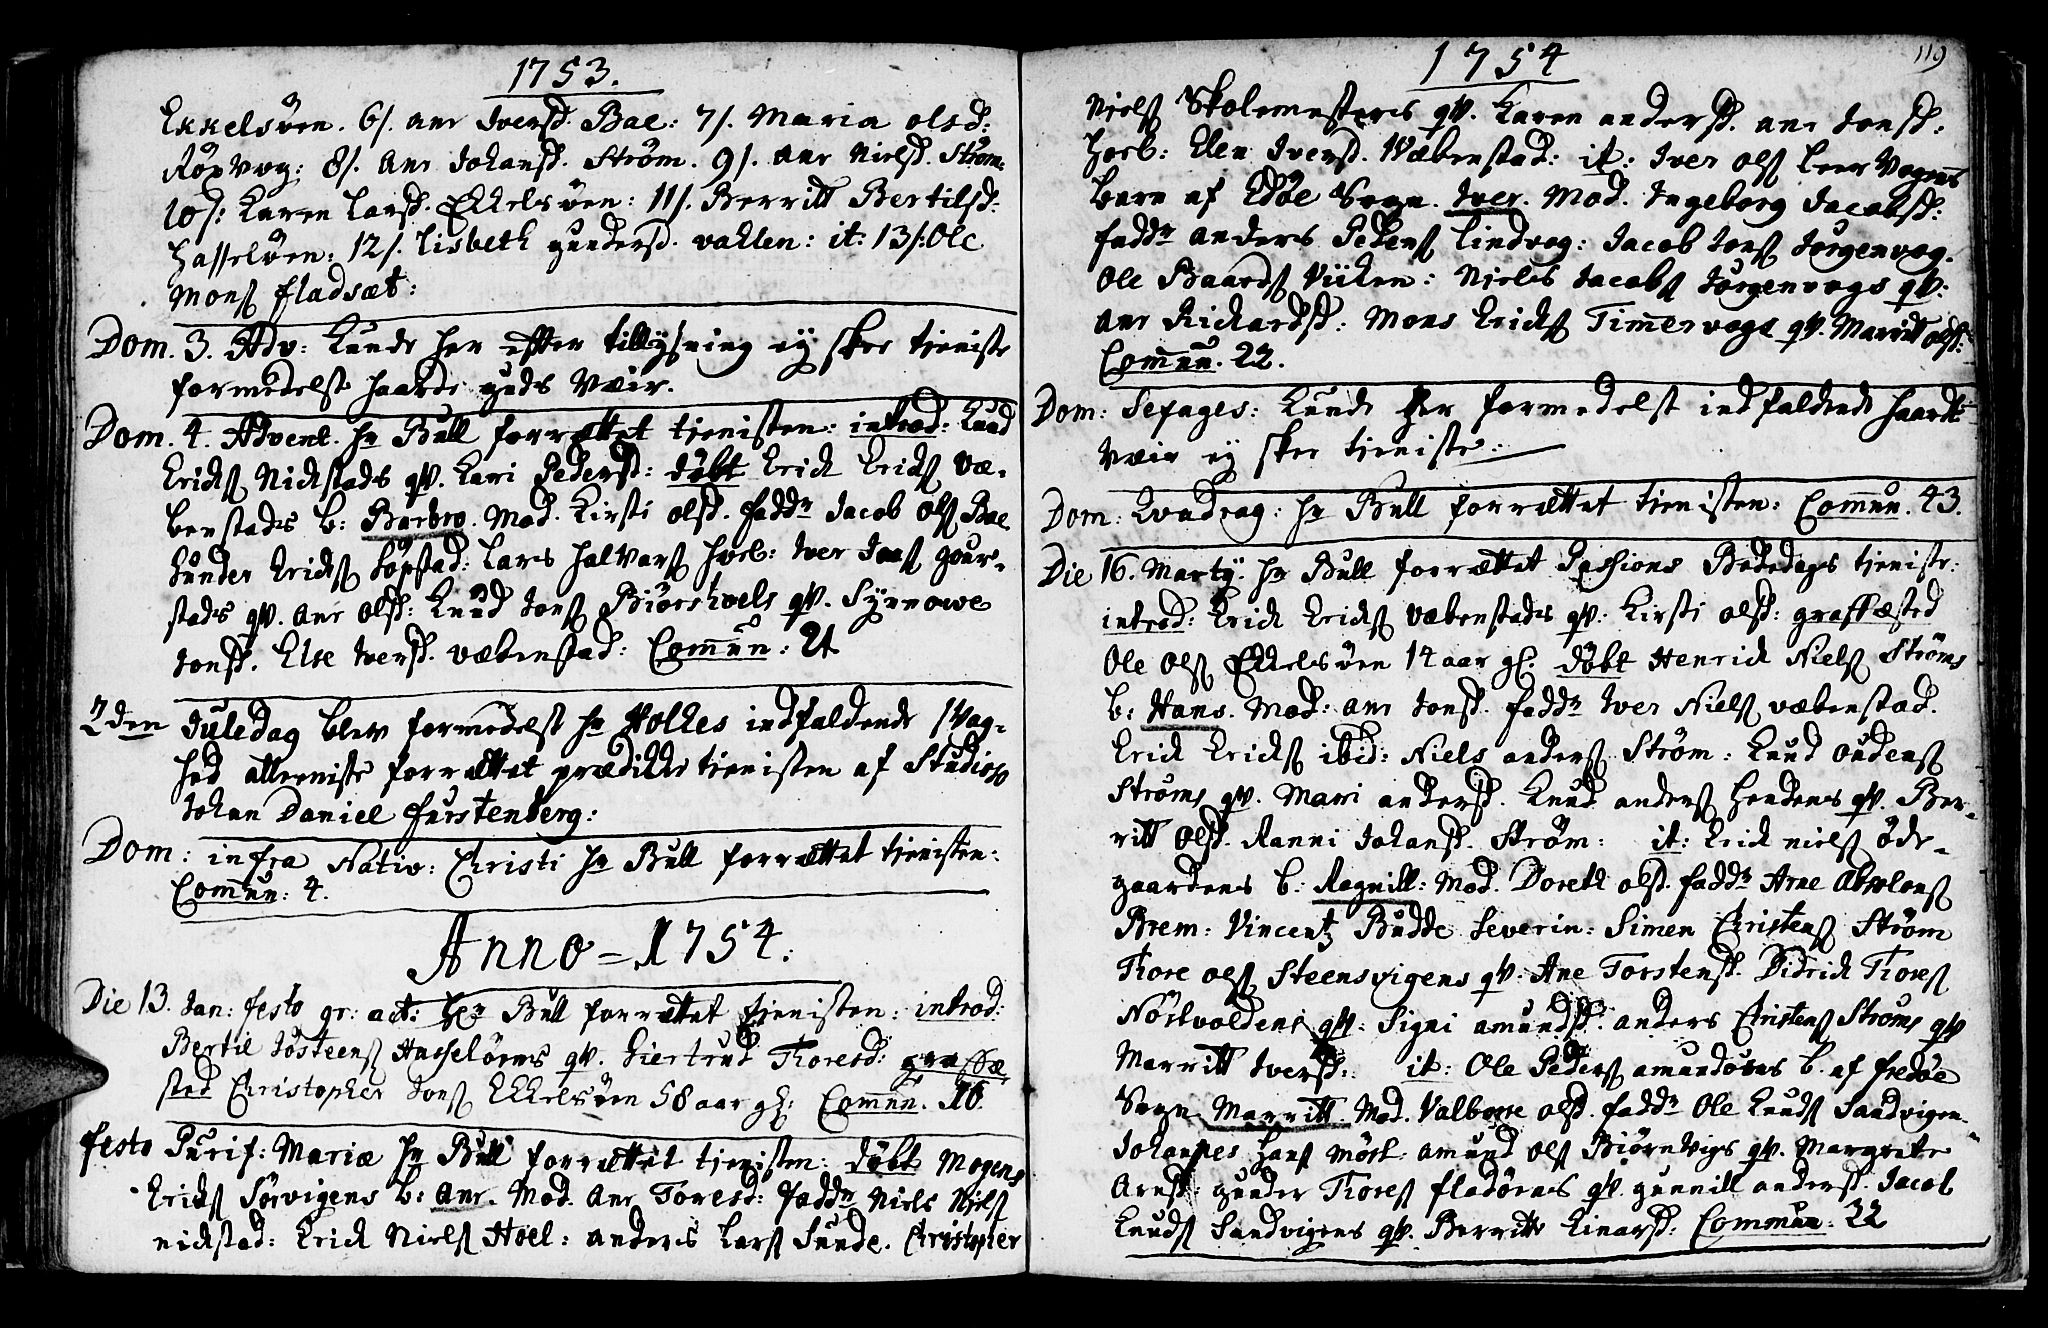 1753.
Ekkelsøen. 6/. Ane Iversd. Bae: 7/. Maria olsd:
Røxvog: 8/. Ane Johansd. Strøm. 9/. Ane Nielsd. Strøm.
10/: Karen Larsd. Ekkelsøen: 11/. Berritt Bertilsd:
Hasseløen: 12/. Lisbeth gundersd. vaklen: it: 13/: Ole
Mons. fladsæt:
Dom. 3. Adv: Kunde her efter tillysning ey skee tieniste
formedelst haarde guds Væir.
Dom. 4. Advent. hr Bull forrættet tienisten: introd: Knud
Ericks. Nickstads qv. Kari Pedersd: døbt Erick Ericks. Væ-
benstads b: Barbro. Mod. Kirsti olsd. fadd: Jacob Ols. Bae
Gunder Ericks. Søpstad: Lars Halvars. Horb: Iver Jons. gour-
stads qv. Ane olsd: Knud Jons. Biørshoels qv. Synnowe
Jonsd. Else Iversd. væbenstad: Com̄un: 21
2den Juledag blev formedelst hr Holkes indfaldende Svag-
hed alleeniste forrættet prædikke tienisten af Studioso
Johan Daniel Furstenberg:
Dom: infra Nativ: Christi hr Bull forrættet tienisten:
Com̄un: 4.
Anno = 1754.
Die 13. Jan: festo gr: act: hr Bull forrættet tienisten: introd:
Bertil Josteens. Hasseløens qv. Giertrud Thoresd: graffæ
sted Christopher Jons. Ekkelsøen 58 aar gl: Com̄un. 16.
festo Purif: Mariæ hr Bull forrættet tienisten: døbt Mogens
Ericks. Sørvigens b: Ane. Mod. Ane Toresd: fadd: Niels Niels.
nickstad: Erick Niels. Hoel: anders Lars. Sunde. Christopher
1754
119
Niels. Skolemesters qv. Karen andersd. ane Jonsd:
Horb: Elen Iversd. Væbenstad: it: Iver ols. Leer Vogens
barn af Edøe Sogn. Iver. Mod. Ingeborg Jacobsd:
fadd: anders Peders. Lindvog: Jacob Jons. Jørgenvog.
Ole Baards. Viiken: Niels Jacobs. Jørgenvogs qv:
Ane Rickardsd: Mons Ericks. Tim̄ervogs qv. Marritt olsd:
Com̄un. 22.
Dom: Sexages: Kunde her formedelst indfaldende haardt
Væir ey skee tieniste:
Dom: Qvadrag: hr Bull forrættet tienisten: Com̄un. 43.
Die 16. Martij. hr Bull forrættet Pashions Bededags tieniste:
introd: Erick Ericks. væbenstads qv: Kirsti olsd: graffæsted
Ole Ols. Ekkelsøen 14 aar gl. døbt Henrick Niels. Strøms
b: Hans. Mod: ane Jonsd. fadd: Iver Niels. væbenstad.
Erick Ericks. ibid: Niels anders. Strøm: Knud oudens.
Strøms qv. Mari andersd. Knud anders. Hendens qv. Ber-
ritt Olsd. Ranni Johansd. Strøm: it: Erick niels. øde-
gaardens b: Ragnill: Mod. Doreth olsd. fadd: Arne Absolons.
Brem: Vincentz Budde Severin: Simen Christens. Strøm
Thore ols. Steensvigens qv: Ane Torstensd. Didrick Thores.
Nørtvoldens qv: Signi amundsd: anders Christens. Strøms qv
Marritt Iversd: it: Ole Peders. amundøens b. af fredøe
Sogn Marritt. Mod. Valborre olsd. fadd: Ole Knuds. Sandvigen.
Johannes Hans. Mørk. amund ols. Biørnvigs qv. Margrete
Arnsd: gunder Thores. fladøens qv. gunnill andersd. Jacob
Knuds. Sandvigens qv. Berritte Einarsd: Commun: 32